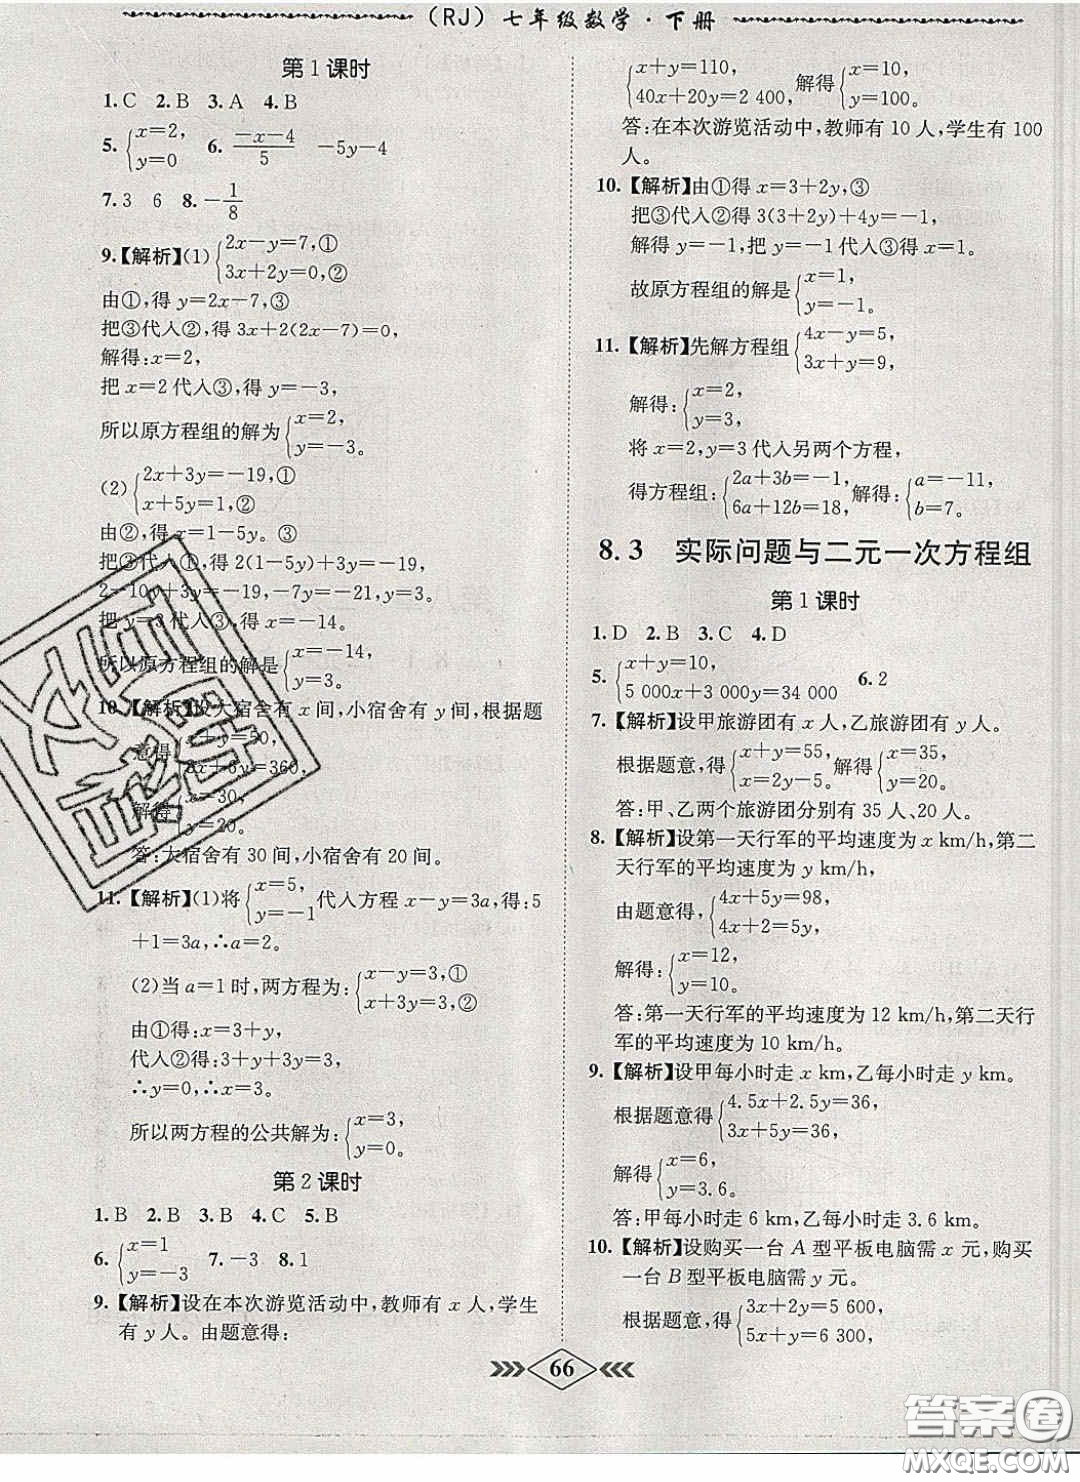 (RJ) 七年级数学·下册
第1课时
1. C 2. B 3. A 4. B
5. {x=2, y=0 6. (-x-4)/5 -5y-4
7. 3 6 8. -1/8
9.【解析】(1){2x-y=7,① 3x+2y=0,②
由①,得 y=2x-7,③
把③代入②,得 3x+2(2x-7)=0,
解得:x=2,
把 x=2 代入③,得 y=-3,
所以原方程组的解为{x=2, y=-3.
(2){2x+3y=-19,① x+5y=1,②
由②,得 x=1-5y. ③
把③代入①,得 2(1-5y)+3y=-19,
2-10y+3y=-19,-7y=-21,y=3.
把 y=3 代入③,得 x=-14.
所以原方程组的解是{x=-14, y=3.
10.【解析】设大宿舍有 x 间,小宿舍有 y 间,根据题
意得{x+y=50, 8x+6y=360,
解得{x=30, y=20.
答:大宿舍有 30 间,小宿舍有 20 间.
11.【解析】(1)将{x=5, y=-1 代入方程 x-y=3a,得:5
+1=3a,∴a=2。
(2)当 a=1 时,两方程为:{x-y=3,① x+3y=3,②
由①得:x=3+y,
代入②得:3+y+3y=3,
∴y=0,∴x=3。
所以两方程的公共解为:{x=3, y=0.
第2课时
1. B 2. B 3. B 4. C 5. B
6. {x=1 y=-3 7. -3 8. 1
9.【解析】设在本次游览活动中,教师有 x 人,学生
有 y 人。由题意得:
{x+y=110, 40x+20y=2 400, 解得{x=10, y=100.
答:在本次游览活动中,教师有 10 人,学生有 100
人。
10.【解析】由①得 x=3+2y,③
把③代入②得 3(3+2y)+4y=-1,
解得 y=-1,把 y=-1 代入③得 x=1。
故原方程组的解是{x=1, y=-1.
11.【解析】先解方程组{4x-y=5, 3x+y=9,
解得:{x=2, y=3,
将 x=2,y=3 代入另两个方程,
得方程组:{2a+3b=-1, 6a+12b=18, 解得:{a=-11, b=7。
8.3 实际问题与二元一次方程组
第1课时
1. D 2. B 3. C 4. D
5. {x+y=10, 5 000x+3 000y=34 000 6. 2
7.【解析】设甲旅游团有 x 人,乙旅游团有 y 人。
根据题意,得{x+y=55, x=2y-5. 解得{x=35, y=20.
答:甲、乙两个旅游团分别有 35 人、20 人。
8.【解析】设第一天行军的平均速度为 x km/h,第二
天行军的平均速度为 y km/h,
由题意得,{4x+5y=98, 4x+2=5y,
解得:{x=12, y=10。
答:第一天行军的平均速度为 12 km/h,第二天行
军的平均速度为 10 km/h.
9.【解析】设甲每小时走 x km,乙每小时走 y km。
根据题意得{4.5x+2.5y=36, 3x+5y=36,
解得{x=6, y=3.6.
答:甲每小时走 6 km,乙每小时走 3.6 km。
10.【解析】设购买一台 A 型平板电脑需 x 元,购买
一台 B 型平板电脑需 y 元.
根据题意,得{3x+2y=5 600, 5x+y=6 300,
66
答案圈
MXQE.COM